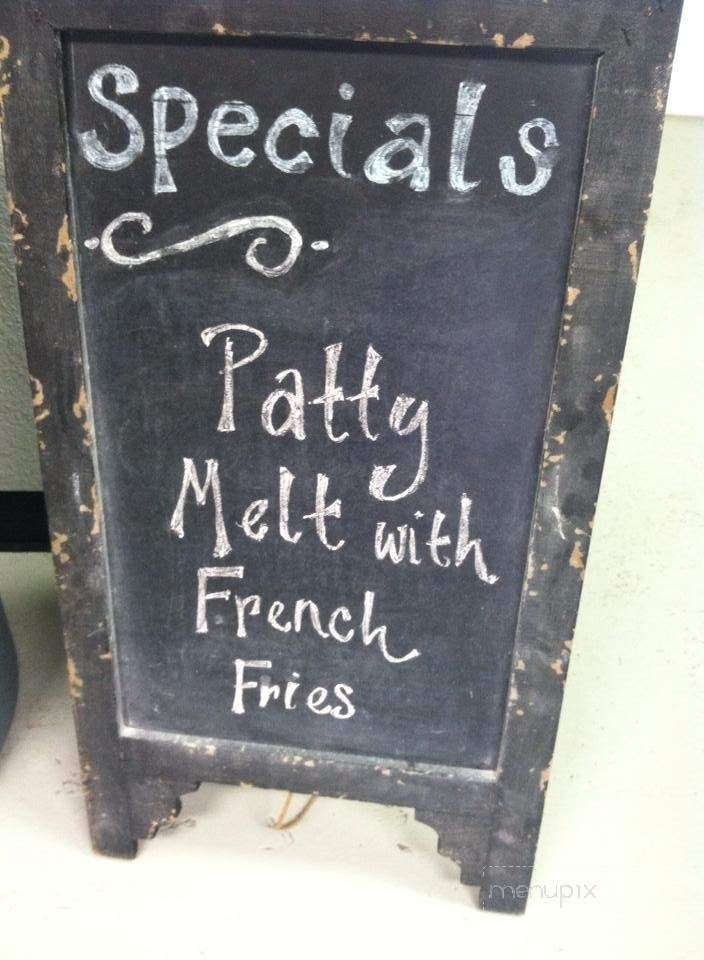 Specials
Patty
Melt with
French
Fries
menupix